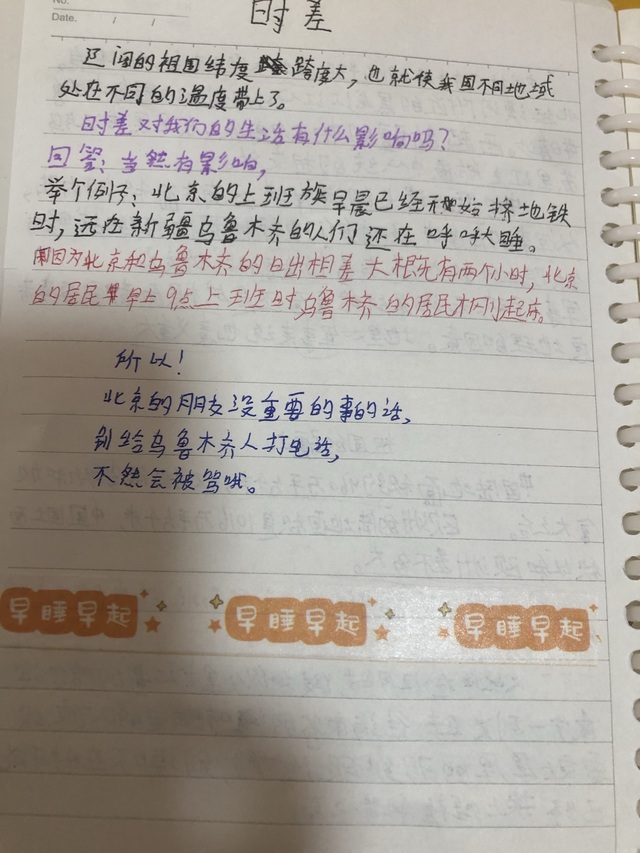 No.
Date.
时差
辽阔的祖国纬度跨度大，也就使我国不同地域
处在不同的温度带上了。
时差对我们的生活有什么影响吗？
回答：当然有影响，
举个例子：北京的上班族早晨已经开始挤地铁
时，远在新疆乌鲁木齐的人们还在呼呼大睡。
因为北京和乌鲁木齐的日出相差大概有两个小时，北京
的居民早上9点上班时乌鲁木齐的居民才刚起床。
所以！
北京的朋友没重要的事的话，
别给乌鲁木齐人打电话，
不然会被骂哦。
早睡早起 早睡早起 早睡早起